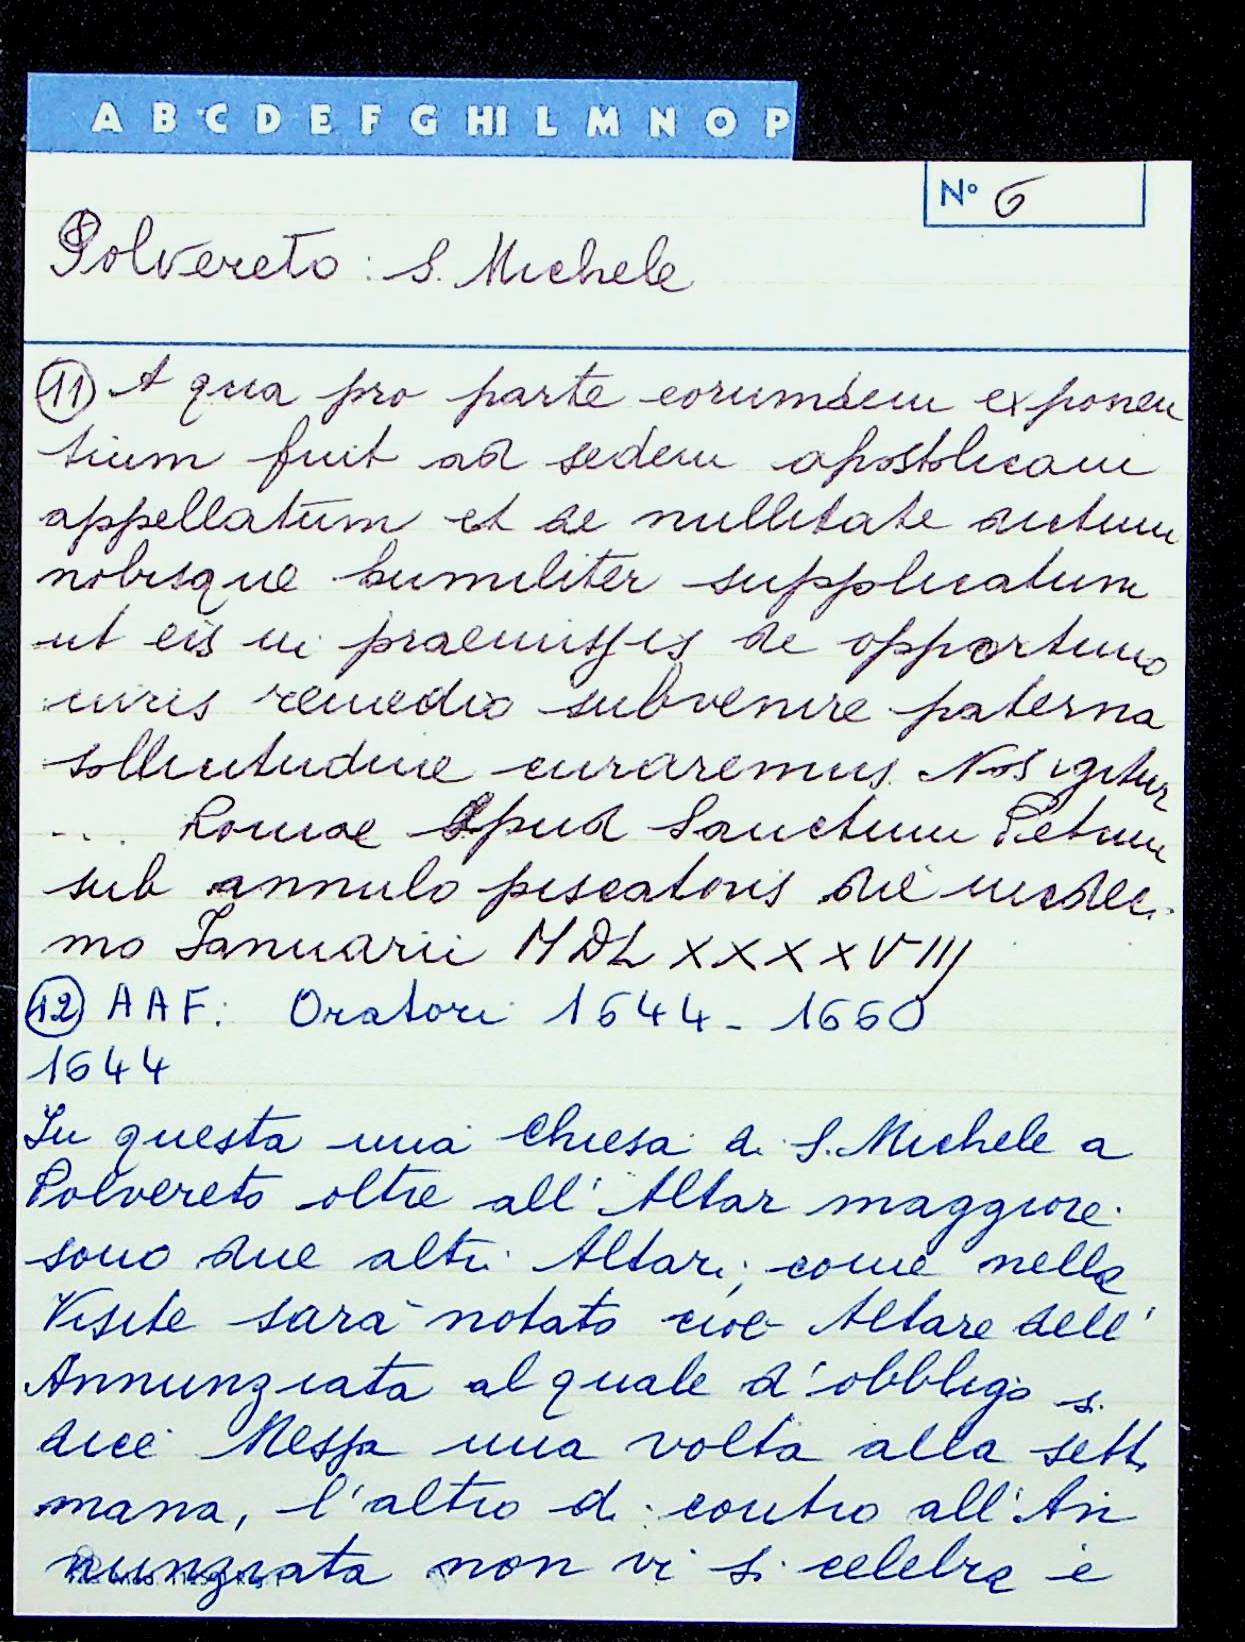 A B C D E F G HI L M N O P
N° 6
Polvereto: S. Michele
(11) A qua pro parte eorumdem exponen
tium fuit ad sedem apostolicam
appellatum et de nullitate dictum
nobisque humiliter supplicatum
ut eis in praemissis de opportuno
iuris remedio subvenire paterna
sollicitudine curaremus. Nos igitur
... Romae Apud Sanctum Petrum
sub annulo piscatoris die undeci
mo Januarii MDLXXXXVIII
(12) AAF: Oratori 1644 - 1660
1644
In questa mia Chiesa di S. Michele a
Polvereto oltre all'Altar maggiore
sono due altri Altari, come nella
Visite sarà notato cioè Altare dell'
Annunziata al quale d'obbligo si
dice Messa una volta alla setti
mana, l'altro di contro all'An
nunziata non vi si celebra e